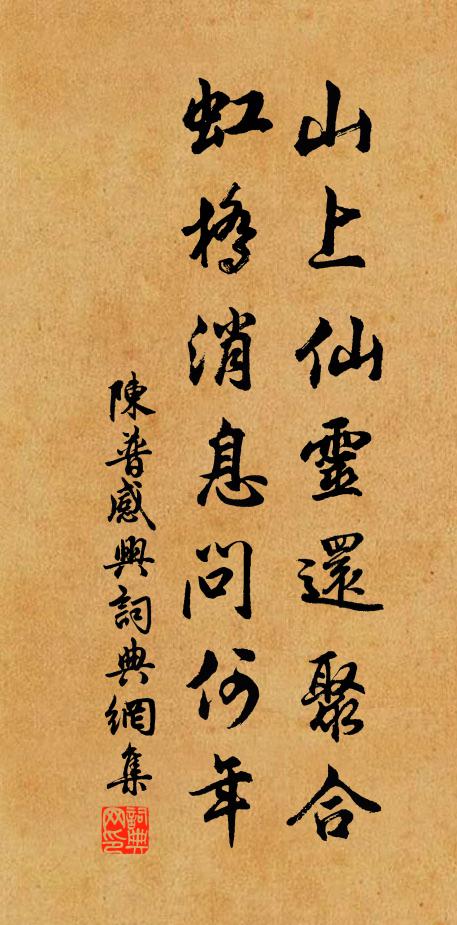 山上仙靈還聚合
虹橋消息問何年
陳普感興詞典網集
詞典网印